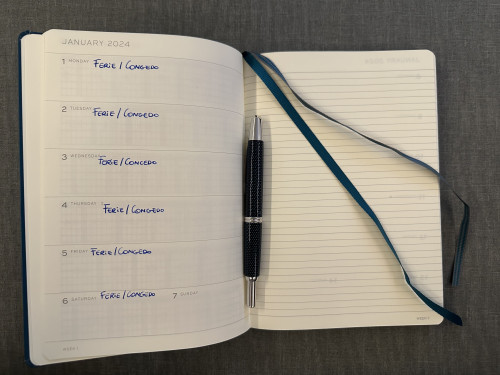 JANUARY 2024
1 MONDAY FERIE/CONGEDO
2 TUESDAY FERIE/CONGEDO
3 WEDNESDAY FERIE/CONGEDO
4 THURSDAY FERIE/CONGEDO
5 FRIDAY FERIE/CONGEDO
6 SATURDAY FERIE/CONGEDO 7 SUNDAY
WEEK 1